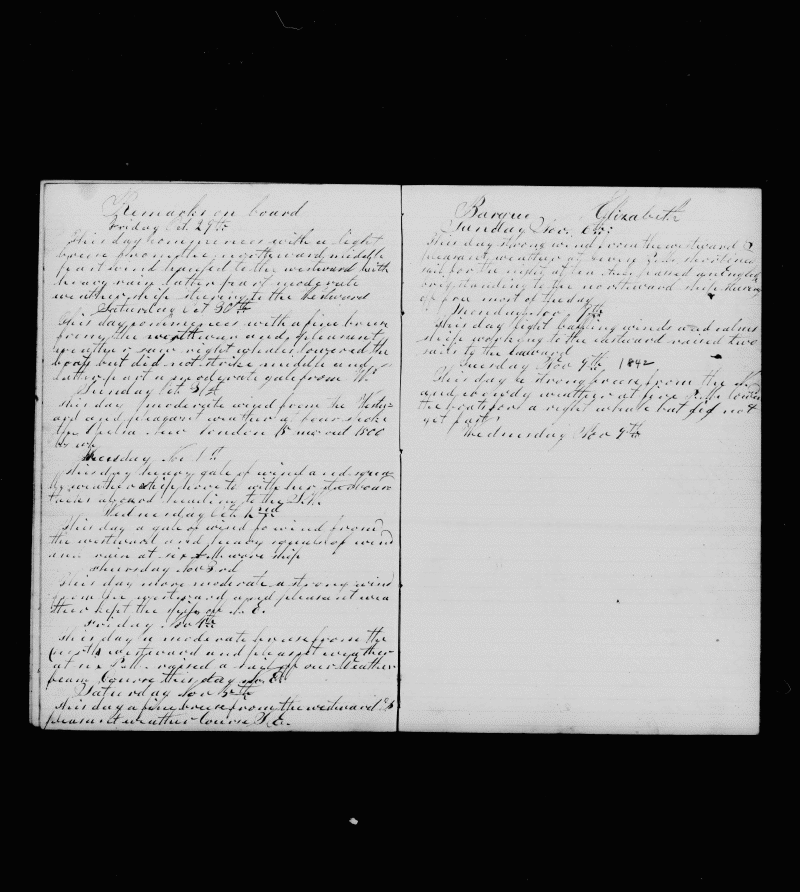 Remarks on board
Friday Oct 29th
This day commences with a light
breeze from the northward middle
part wind hauled to the westward with
heavy rain latter part moderate
weather ship steering to the Westward
Saturday Oct 30th
This day commences with a fine breeze
from the northward and pleasant
weather saw right whales lowered the
boats but did not strike middle and
latter part a moderate gale from W
Sunday Oct 31st
this day moderate wind from the Wester
ard and pleasant weather at four spoke
the New London 15 mo out 1800

Tuesday Nov 1th
this day heavy gale of wind and squa
ly weather ship hove to with her
tacks aboard heading to the
Wednesday Oct 2nd
this day a gale of wind wind from
the westward and heavy squalls of wind
and rain at six wore ship
Thursday Nov 3rd
this day more moderate a strong wind
from the westward and pleasant wea
ther kept the ship
Friday Nov 4th
this day a moderate breeze from the
north westward and pleasant weather
at six P.M. raised a sail off our weather
beam Course this day
Saturday Nov 5th
this day a fine breeze from the westward &
pleasant weather Course S.E.
Barque Elizabeth
Sunday Nov. 6th
This day strong wind from the westward &
pleasant weather at seven P.M. shortened
sail for the night at ten passed an English
standing to the northward ship
of for most of the day
Monday Nov
this day light baffling winds and calms
ship working to the eastward raised two
sails to the
Tuesday Nov 9th 1842
This day a strong breeze from the
and cloudy weather at five P.M. lowered
the boats for a right whale but did not
get fast
Wednesday Nov 9th